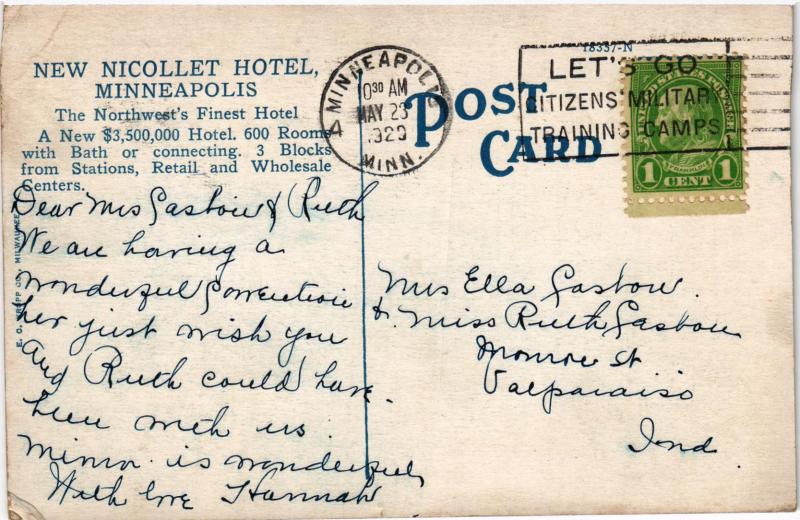 NEW NICOLLET HOTEL,
MINNEAPOLIS
The Northwest's Finest Hotel
A New $3,500,000 Hotel. 600 Rooms
with Bath or connecting. 3 Blocks
from Stations, Retail and Wholesale
Centers.
Dear Mrs Gastow & Ruth
We are having a
wonderful Convection
her just wish you
and Ruth could have
been with us.
Minn. is wonderful
With love Hannah
E. C. KROPP CO. MILWAUKEE
MINNEAPOLIS
1030 AM
MAY 23
1929
MINN.
4
POST
CARD
18337-N
LET'S GO
CITIZENS MILITARY
TRAINING CAMPS
FRANKLIN
1 CENT 1
Mrs Ella Gastow.
& Miss Ruth Gastow
Monroe St
Valparaiso
Ind